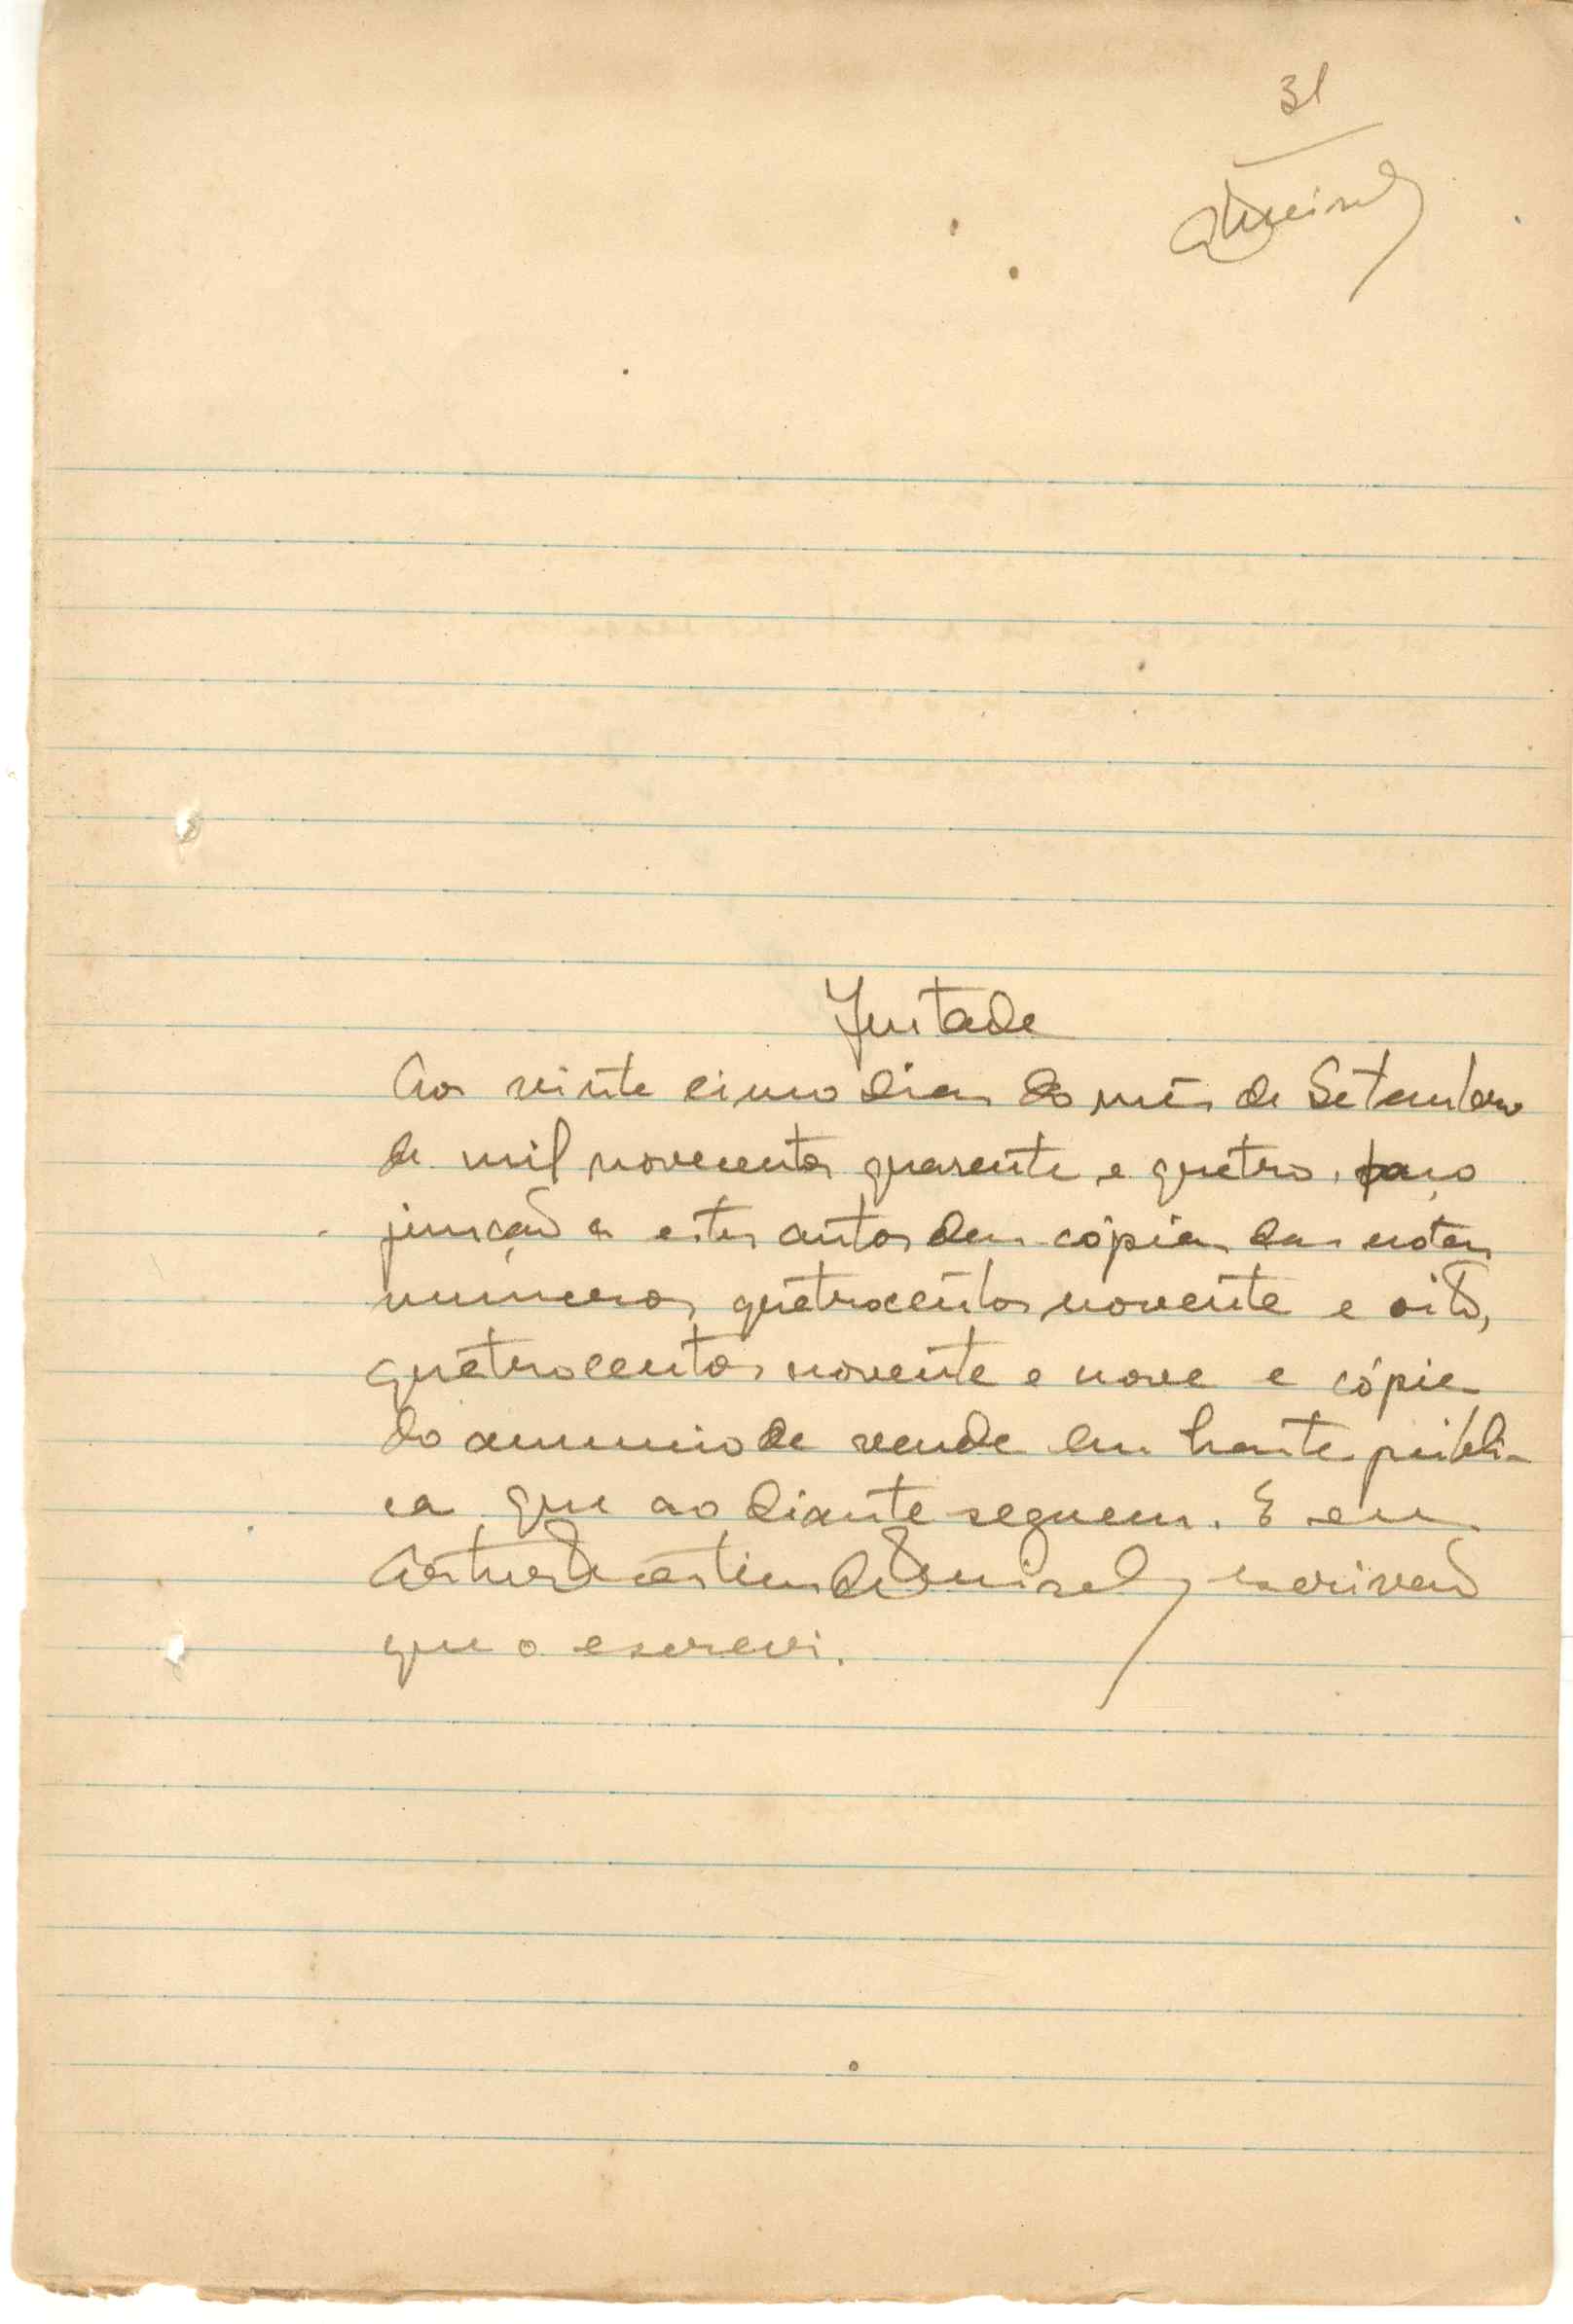 31
Juntada
Aos vinte cinco dias do mês de Setembro
de mil novecentos quarenta e quatro, faço
junção a estes autos das cópias das notas
numeros quatrocentos noventa e oito,
quatrocentos noventa e nove e cópia
do anuncio de venda em hasta públi-
ca que ao diante seguem. E eu
escrivão
que o escrevi.